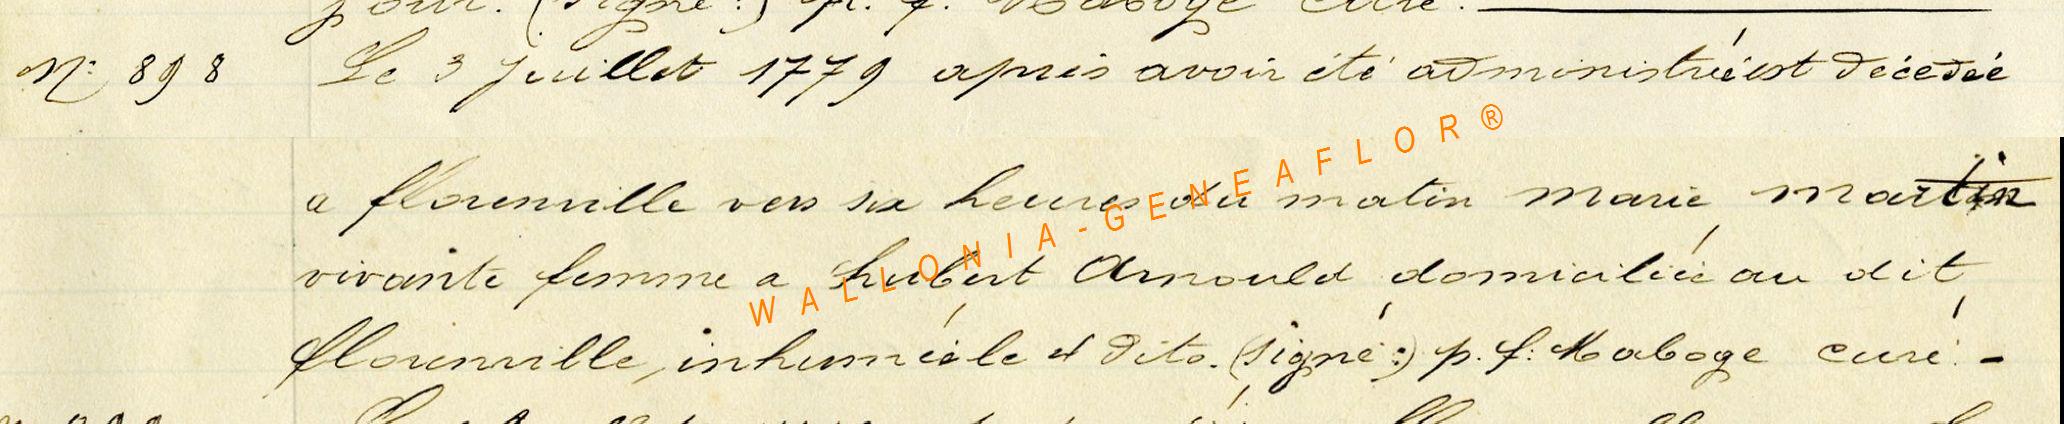 jour. (Signé:) p. f. Maboge curé.
N° 898 Le 3 juillet 1779 après avoir été administrée est décédée
a florenville vers six heures du matin Marie Martin
vivante femme a hubert Arnould domiciliée au dit
florenville, inhumée le 4 dito. (Signé:) p. f. Maboge curé. -
WALLONIA-GENEAFLOR®